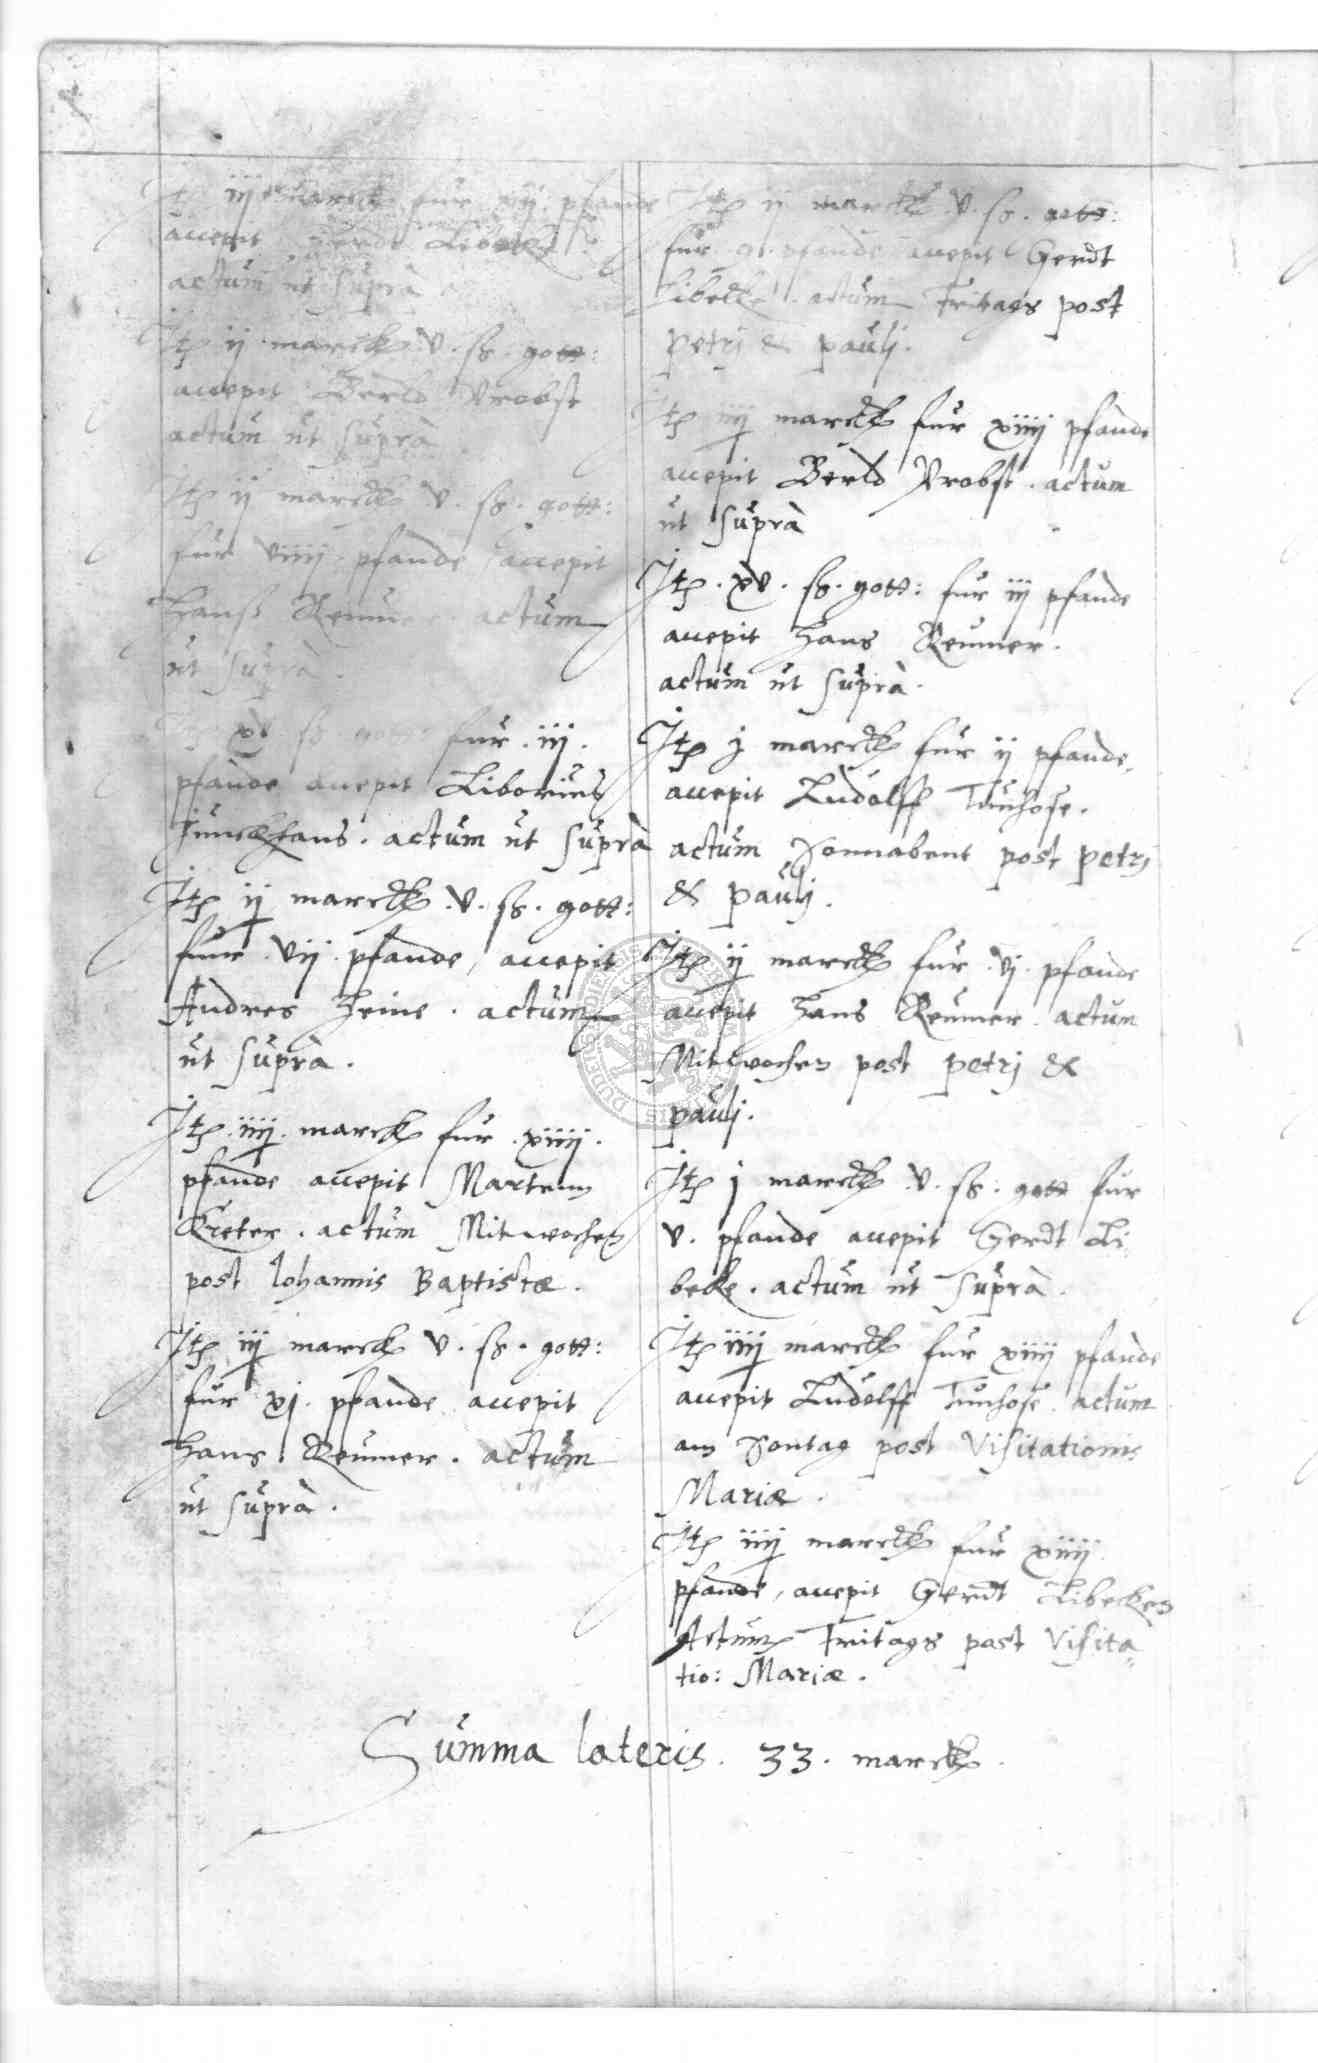 Itẽ iij marck fur xij pfande
accepit Gerdt Libeke
actum ut supra
Itẽ ij marck v. ß. gott:
accepit Berld Probst
actum ut supra
Itẽ ij marck v. ß. gott:
fur viiij pfande accepit
Hanß Reumer. actum
ut supra.
Itẽ xv ß gott: fur .iij.
pfande accepit Liborius
Junckhans. actum ut supra
Itẽ ij marck .v. ß. gott:
fur .vij. pfande, accepit
Andres Heine. actum
ut supra.
Itẽ .iiij. marck fur .xiiij.
pfande accepit Marten
Kreter. actum Mitwochen
post Iohannis Baptistæ.
Itẽ iij marck v. ß. gott:
fur xj. pfande accepit
Hans Reumer. actum
ut supra.
Itẽ ij marck .v. ß. gott:
fur pfande accepit Gerdt
Libecke. actum Fritags post
petrj & paulj.
Itẽ iiij marck fur xiiij pfande
accepit Berld Probst. actum
ut supra
Itẽ .xv. ß. gott: fur iij pfande
accepit Hans Reumer.
actum ut supra.
Itẽ j marck fur ij pfande,
accepit Ludolff Tunhose.
actum Sonnabent post petrj
& paulj.
Itẽ ij marck fur .vj. pfande
accepit Hans Reumer. actum
Mitwochen post petrj &
paulj.
Itẽ j marck .v. ß. gott fur
v. pfande accepit Gerdt Li-
beke. actum ut supra.
Itẽ iiij marck fur xiiij pfande
accepit Ludolff Tunhose. actum
am Sontag post Visitationis
Mariæ.
Itẽ iiij marck fur xiiij
pfande, accepit Gerdt Libecken
Actum Fritags post Visita-
tio: Mariæ.
Summa lateris. 33. marck.